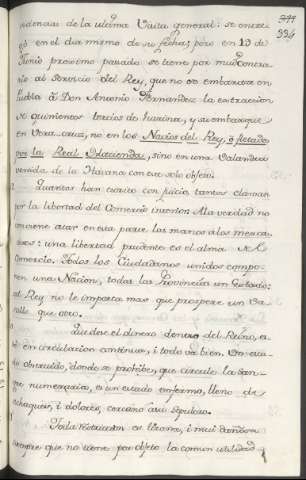 324
redencias de la ultima Visita general: se entre
gó en el dia mismo de su fecha; pero en 13 de
Junio proximo pasado se tiene por mui contra
rio al servicio del Rey, que no se embarcen en
Puebla á Don Antonio Fernandez la extraccion
de quinientos tercios de harina, y su embarque
en Vera-cruz, no en los Navios del Rey, ó fletado
por la Real Hacienda, sino en una Balandra
venida de la Havana con este solo objeto.
Quantos han escrito con juicio, tantos claman
por la libertad del Comercio interior. A la verdad no
conviene atar en esta parte las manos a los merca
deres: una libertad prudente es el alma del
Comercio. Todos los Ciudadanos unidos compo
nen una Nacion, todas las Provincias un Estado:
al Rey no le importa mas que prospere un Va
lle que otro.
Quedese el dinero dentro del Reino, es
té en circulacion continua, i todo va bien. En esta
do obstruido, donde se prohibe, que circule la san
gre numeraria, es un estado enfermo, lleno de
achaques, i dolores, cercano a su sepulcro.
Toda restriccion es tirana, i mui dañosa
siempre que no tiene por objeto la comun utilidad,